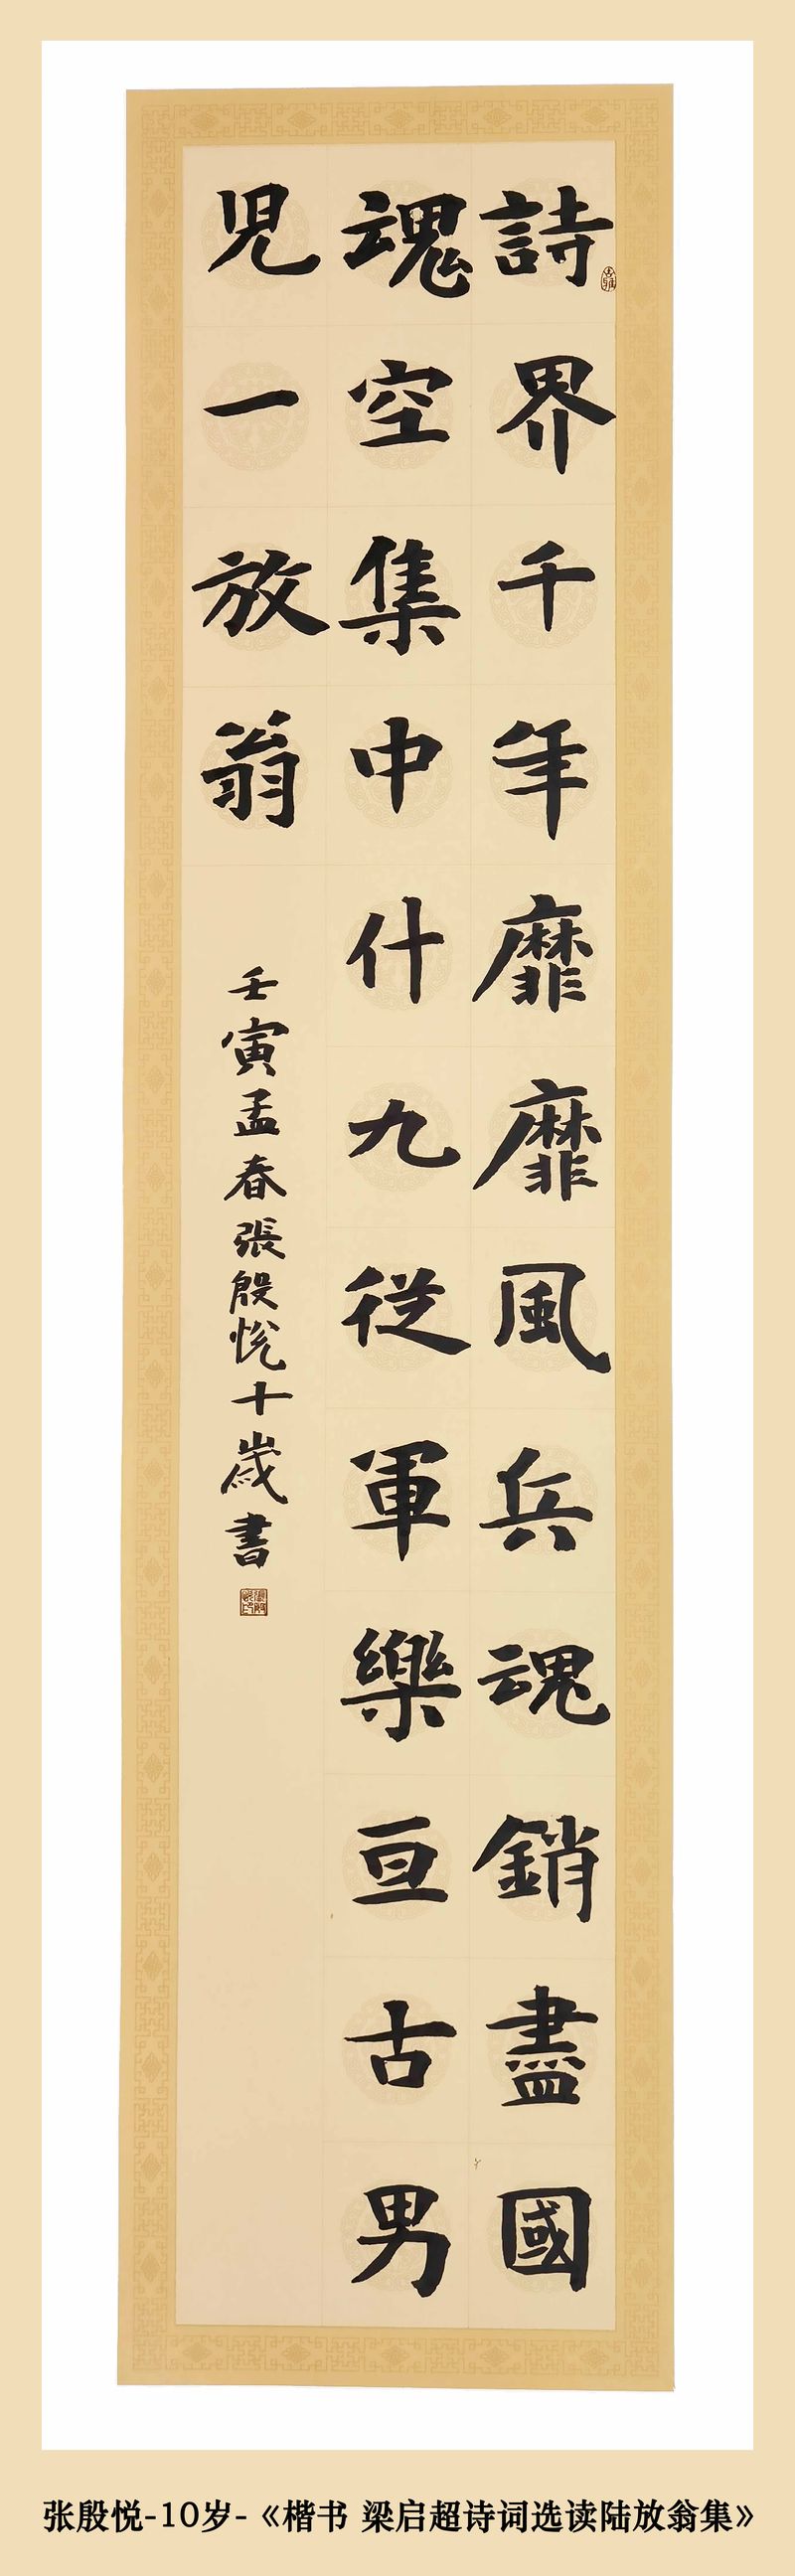 詩界千年靡靡風兵魂銷盡國
魂空集中什九從軍樂亘古男
児一放翁
壬寅孟春張殷悅十歲書
张殷悦-10岁-《楷书 梁启超诗词选读陆放翁集》